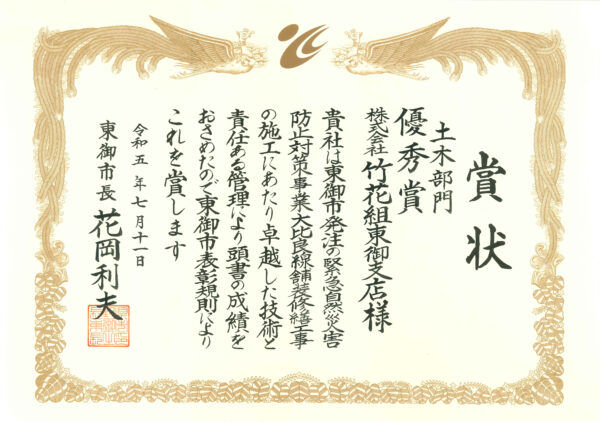 賞状
土木部門
優秀賞
株式会社 竹花組東御支店様
貴社は東御市発注の緊急自然災害
防止対策事業大比良線舗装修繕工事
の施工にあたり卓越した技術と
責任ある管理により頭書の成績を
おさめたので東御市表彰規則により
これを賞します
令和五年七月十一日
東御市長 花岡利夫